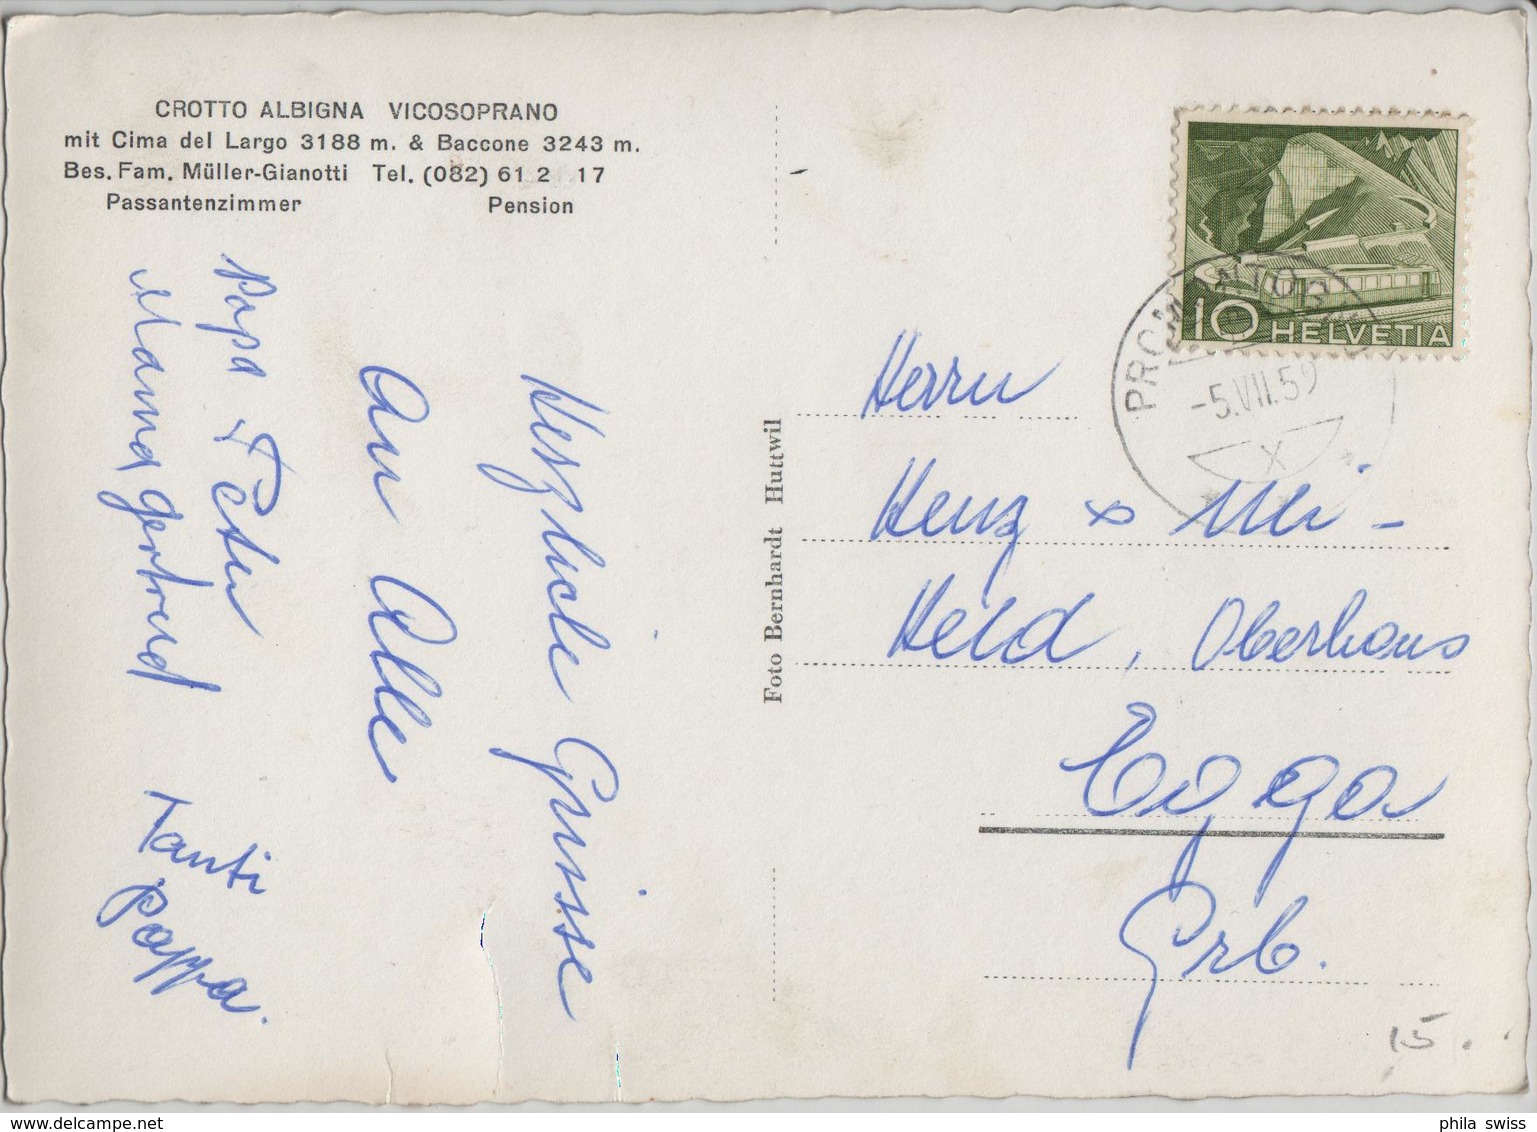 CROTTO ALBIGNA VICOSOPRANO
mit Cima del Largo 3188 m. & Baccone 3243 m.
Bes. Fam. Müller-Gianotti Tel. (082) 61 2 17
Passantenzimmer Pension
Herzliche Grüsse
an Alle
Papa + Peter
Mama Gertrud
Tanti
Poppa.
Foto Bernhardt Huttwil
10 HELVETIA
PROMONTOGNO
-5.VII.59
X
Herrn
Heinz + Uei -
Held, Oberhaus
Egga
Grb.
15.
phila swiss